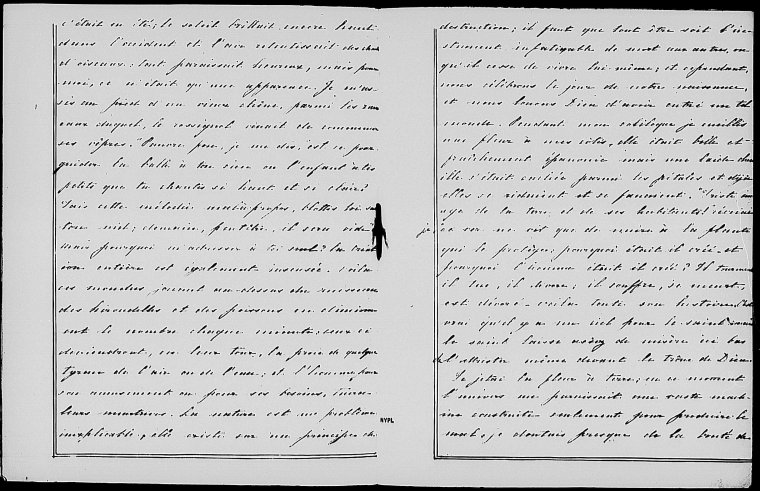 c'était en été; le soleil brillait encore haut
dans l'occident et l'air retentissait des chants
d'oiseaux: tout paraissait heureux, mais pour
moi, ce n'était qu'une apparence. Je m'as-
sis au pied d'un vieux chêne, parmi les ram-
eaux duquel, le rossignol venait de commencer
ses vêpres. "Pauvre fou, je me dis, est ce pour
guider la balle à ton sein ou l'enfant à tes
petits que tu chantes si haut et si clair?
Tais cette mélodie malàpropos, blottes toi sur
ton nid; demain, peut-être, il sera vide:
mais pourquoi m'adresser à toi seul? la créat-
ion entière est également insensée. Voilà
ces mouches jouant au-dessus du ruisseau
des hirondelles et des poissons en diminu-
ent le nombre chaque minute: ceux ci
deviendront, en leur tour, la proie de quelque
tyran de l'air ou de l'eau: et l'homme pour
son amusement ou pour ses besoins, tuera
leurs meurtriers. La nature est un problème
inexplicable, elle existe sur un principe de
NYPL
destruction; il faut que tout être soit l'ins-
trument infatigable de mort aux autres, ou
qu'il cesse de vivre lui-même; et cependant,
nous célébrons le jour de notre naissance,
et nous louons Dieu d'avoir entré un tel
monde. Pendant mon soliloque je cueillis
une fleur à mes côtés, elle était belle et
fraîchement épanouie mais une laide chen-
ille s'était cachée parmi les pétales et déjà
elles se ridaient et se fanaient. "Triste im-
age de la terre et de ses habitants! écriai
je ce ver ne vit que de nuire à la plante
qui le protège: pourquoi était il créé et
pourquoi l'homme était il créé? Il tourmente
il tue, il dévore; il souffre, se meurt,
est dévoré - voilà toute son histoire. C'est
vrai qu'il y a un ciel pour le saint mais
le saint laisse assez de misère ici bas
de l'attrister même devant le trône de Dieu.
Je jetai la fleur à terre; en ce moment
l'univers me paraissait une vaste mach-
ine construite seulement pour produire le
mal: je doutais presque de la bonté de